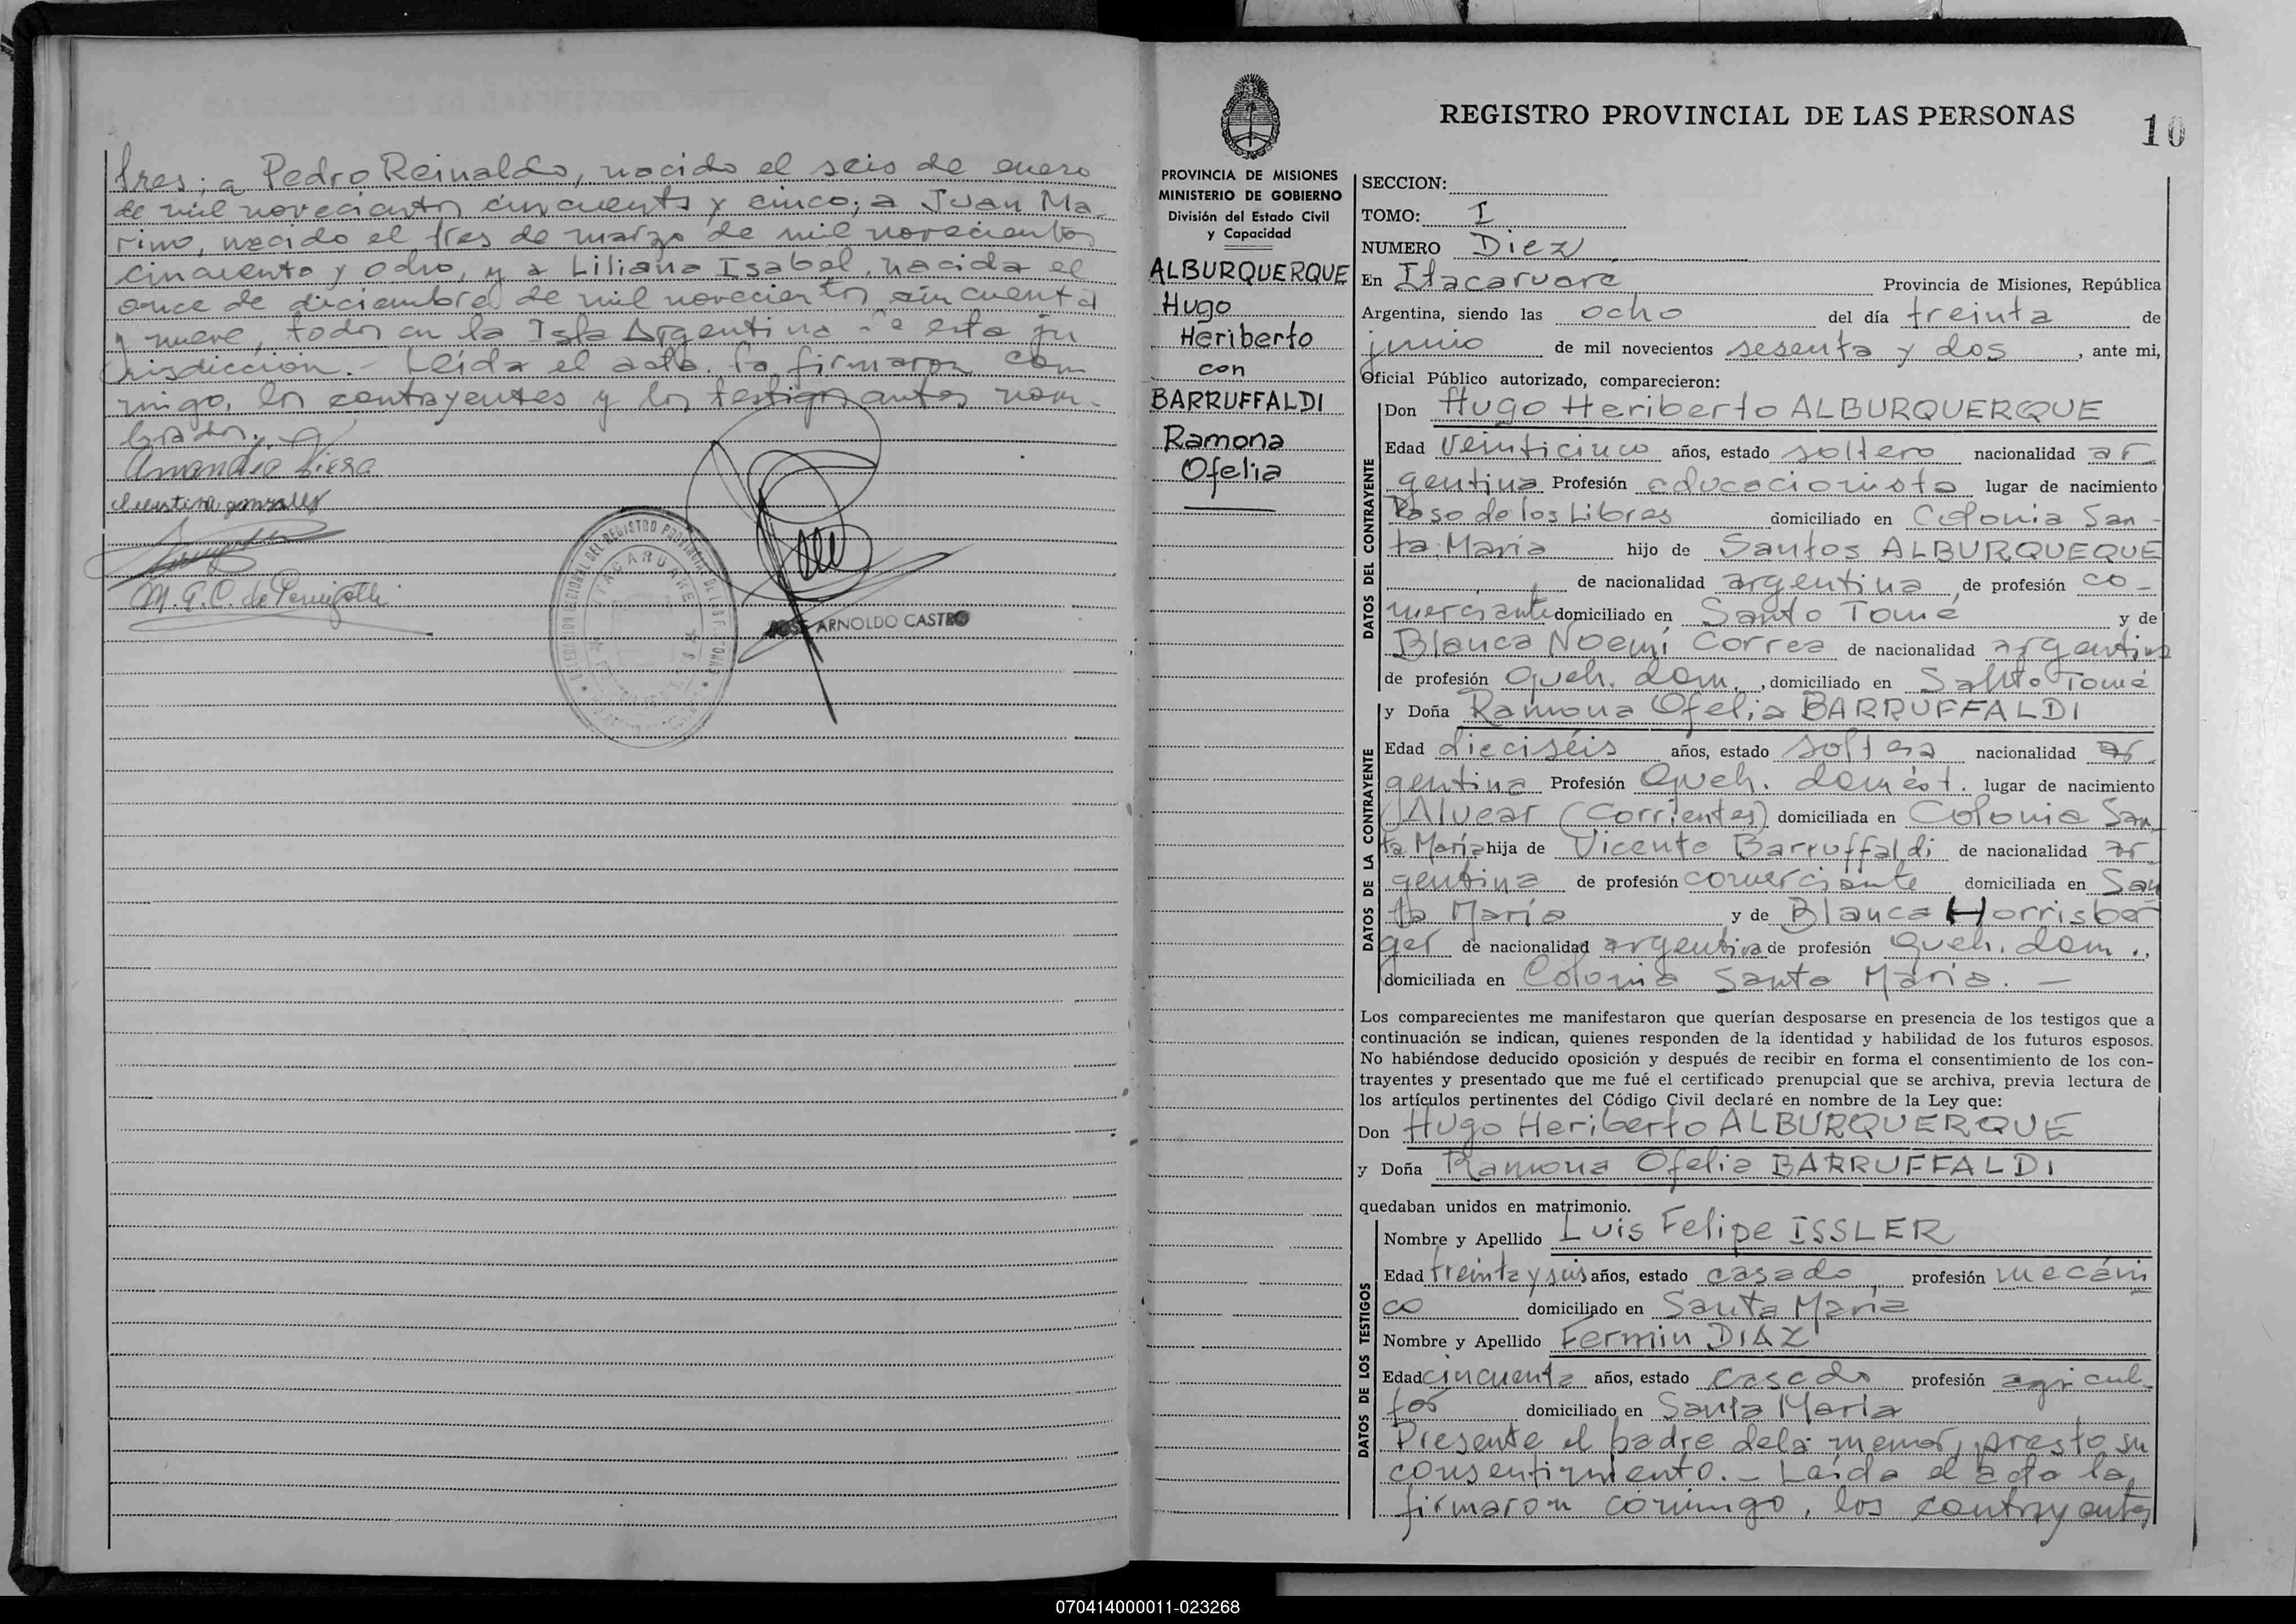 tres; a Pedro Reinaldo, nacido el seis de enero
de mil novecientos cincuenta y cinco; a Juan Ma-
rino, nacido el tres de marzo de mil novecientos
cincuenta y ocho, y a Liliana Isabel, nacida el
once de diciembre de mil novecientos cincuenta
y nueve, todos en la Isla Argentina de esta ju
risdicción.- Leída el acta la firmaron con
migo, los contrayentes y los testigos antes nom-
brados.
M. G. C. de
JOSE ARNOLDO CASTRO
ITACARUARE
PROVINCIA DE MISIONES
MINISTERIO DE GOBIERNO
División del Estado Civil
y Capacidad
ALBURQUERQUE
Hugo
Heriberto
con
BARRUFFALDI
Ramona
Ofelia
REGISTRO PROVINCIAL DE LAS PERSONAS
10
SECCION:
TOMO: I
NUMERO Diez
En Itacaruare Provincia de Misiones, República
Argentina, siendo las ocho del día treinta de
junio de mil novecientos sesenta y dos, ante mi,
Oficial Público autorizado, comparecieron:
DATOS DEL CONTRAYENTE
Don Hugo Heriberto ALBURQUERQUE
Edad veinticinco años, estado soltero nacionalidad ar
gentina Profesión educacionista lugar de nacimiento
Paso de los Libres domiciliado en Colonia San-
ta María hijo de Santos ALBURQUEQUE
de nacionalidad argentina, de profesión co-
merciante domiciliado en Santo Tomé y de
Blanca Noemí Correa de nacionalidad argentina
de profesión Queh. dom., domiciliado en Santo Tomé
DATOS DE LA CONTRAYENTE
y Doña Ramona Ofelia BARRUFFALDI
Edad dieciséis años, estado soltera nacionalidad ar
gentina Profesión Queh. domést. lugar de nacimiento
Alvear (Corrientes) domiciliada en Colonia San-
ta María hija de Vicente Barruffaldi de nacionalidad ar-
gentina de profesión comerciante domiciliada en San
ta María y de Blanca Horrisber
ger de nacionalidad argentina de profesión Queh. dom.,
domiciliada en Colonia Santa María. —
Los comparecientes me manifestaron que querían desposarse en presencia de los testigos que a
continuación se indican, quienes responden de la identidad y habilidad de los futuros esposos.
No habiéndose deducido oposición y después de recibir en forma el consentimiento de los con-
trayentes y presentado que me fué el certificado prenupcial que se archiva, previa lectura de
los artículos pertinentes del Código Civil declaré en nombre de la Ley que:
Don Hugo Heriberto ALBURQUERQUE
y Doña Ramona Ofelia BARRUFFALDI
quedaban unidos en matrimonio.
DATOS DE LOS TESTIGOS
Nombre y Apellido Luis Felipe ISSLER
Edad treinta y seis años, estado casado, profesión mecáni
co domiciliado en Santa María
Nombre y Apellido Fermin DIAZ
Edad cincuenta años, estado casado profesión agricul-
tor domiciliado en Santa María
Presente el padre de la menor, presto su
consentimiento.- Leída el acta la
firmaron conmigo, los contrayentes
070414000011-023268